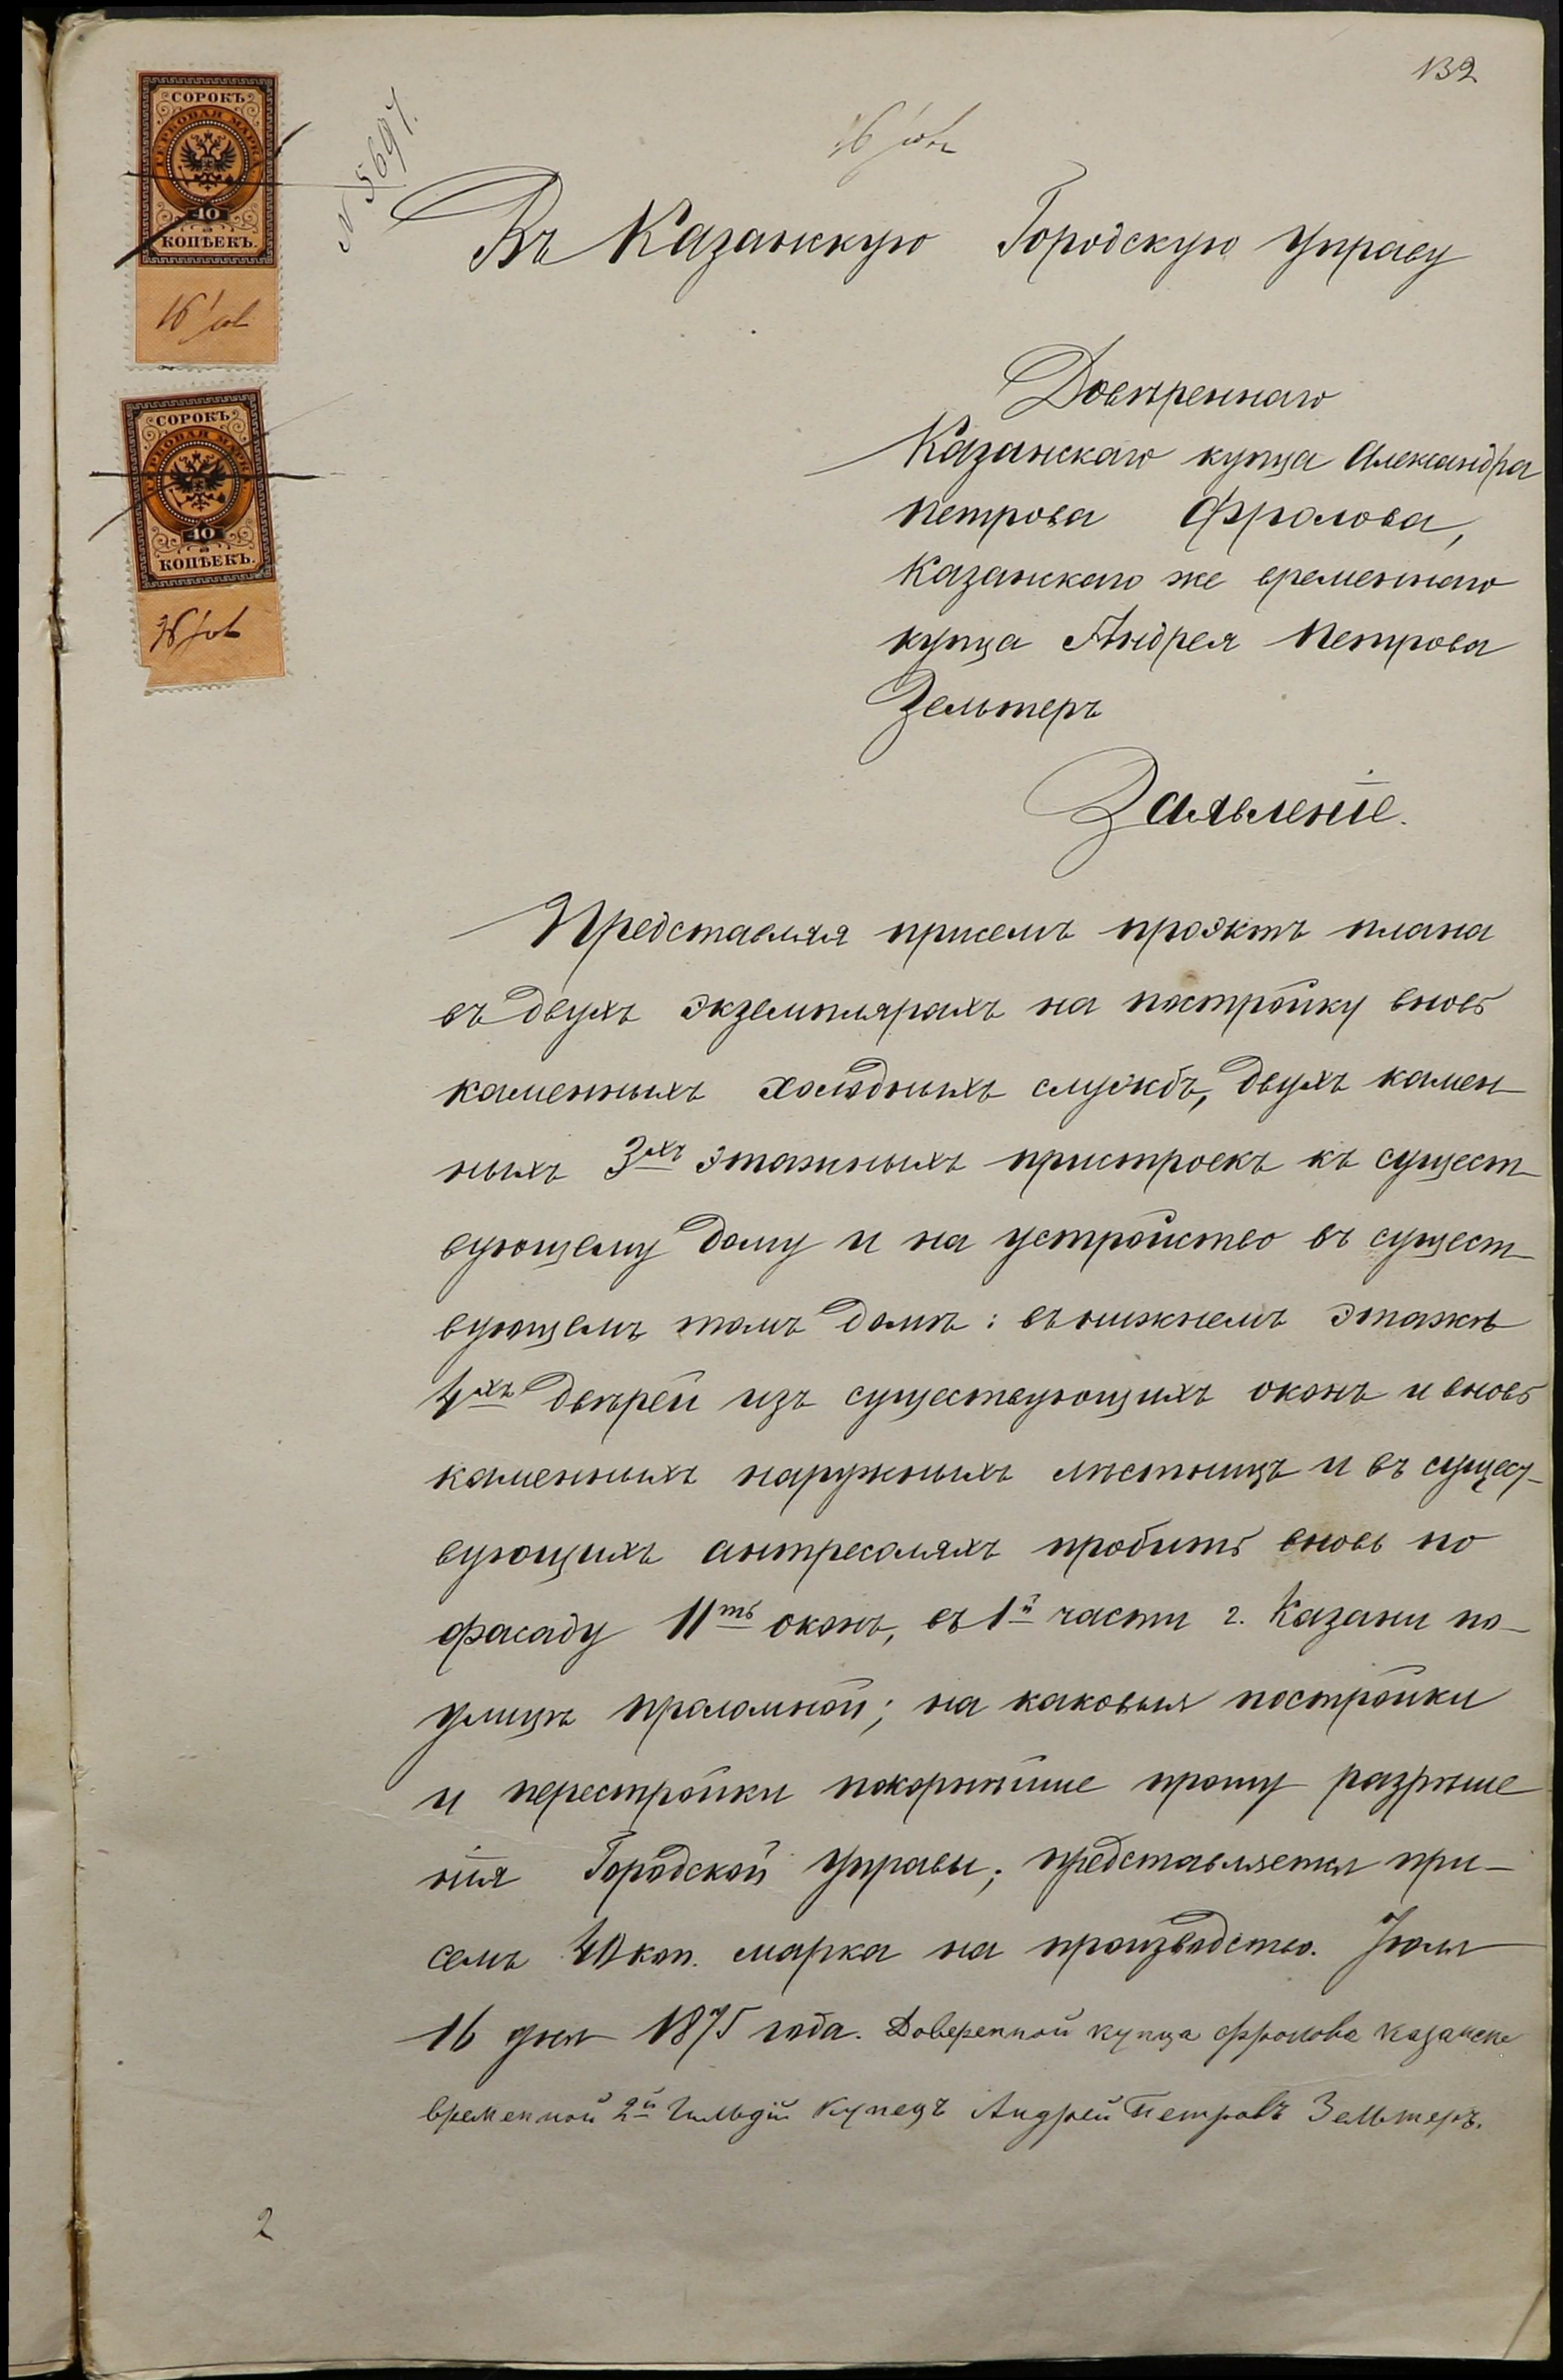 132
СОРОКЪ
ГЕРБОВАЯ МАРКА
40
КОПѢЕКЪ.
16 іюл
СОРОКЪ
ГЕРБОВАЯ МАРКА
40
КОПѢЕКЪ.
16 іюл
N 5697.
16 іюл
Въ Казанскую Городскую Управу
Довѣреннаго
Казанскаго купца Александра
Петрова Фролова,
Казанскаго же временнаго
купца Андрея Петрова
Зельтеръ
Заявленіе.
Представляя присемъ проэктъ плана
въ двухъ экземплярахъ на постройку вновь
каменныхъ холодныхъ службъ, двухъ камен
ныхъ 3хъ этажныхъ пристроекъ къ сущест
вующему дому и на устройство въ сущест
вующемъ томъ домѣ: въ нижнемъ этажѣ
4хъ двѣрей изъ существующихъ оконъ и вновь
каменныхъ наружныхъ лѣстницъ и въ сущес-
вующихъ антресоляхъ пробить вновь по
фасаду 11ть оконъ, въ 1й части г. Казани по-
улицѣ Проломной; на каковыя постройки
и перестройки покорнѣйше прошу разрѣше
нія Городской Управы; представляется при-
семъ 40 коп. марка на производство. Іюля
16 дня 1875 года. Доверенной купца Фролова казанске
временной 2й Гильдіи Купецъ Андрей Петровъ Зельтеръ.
2